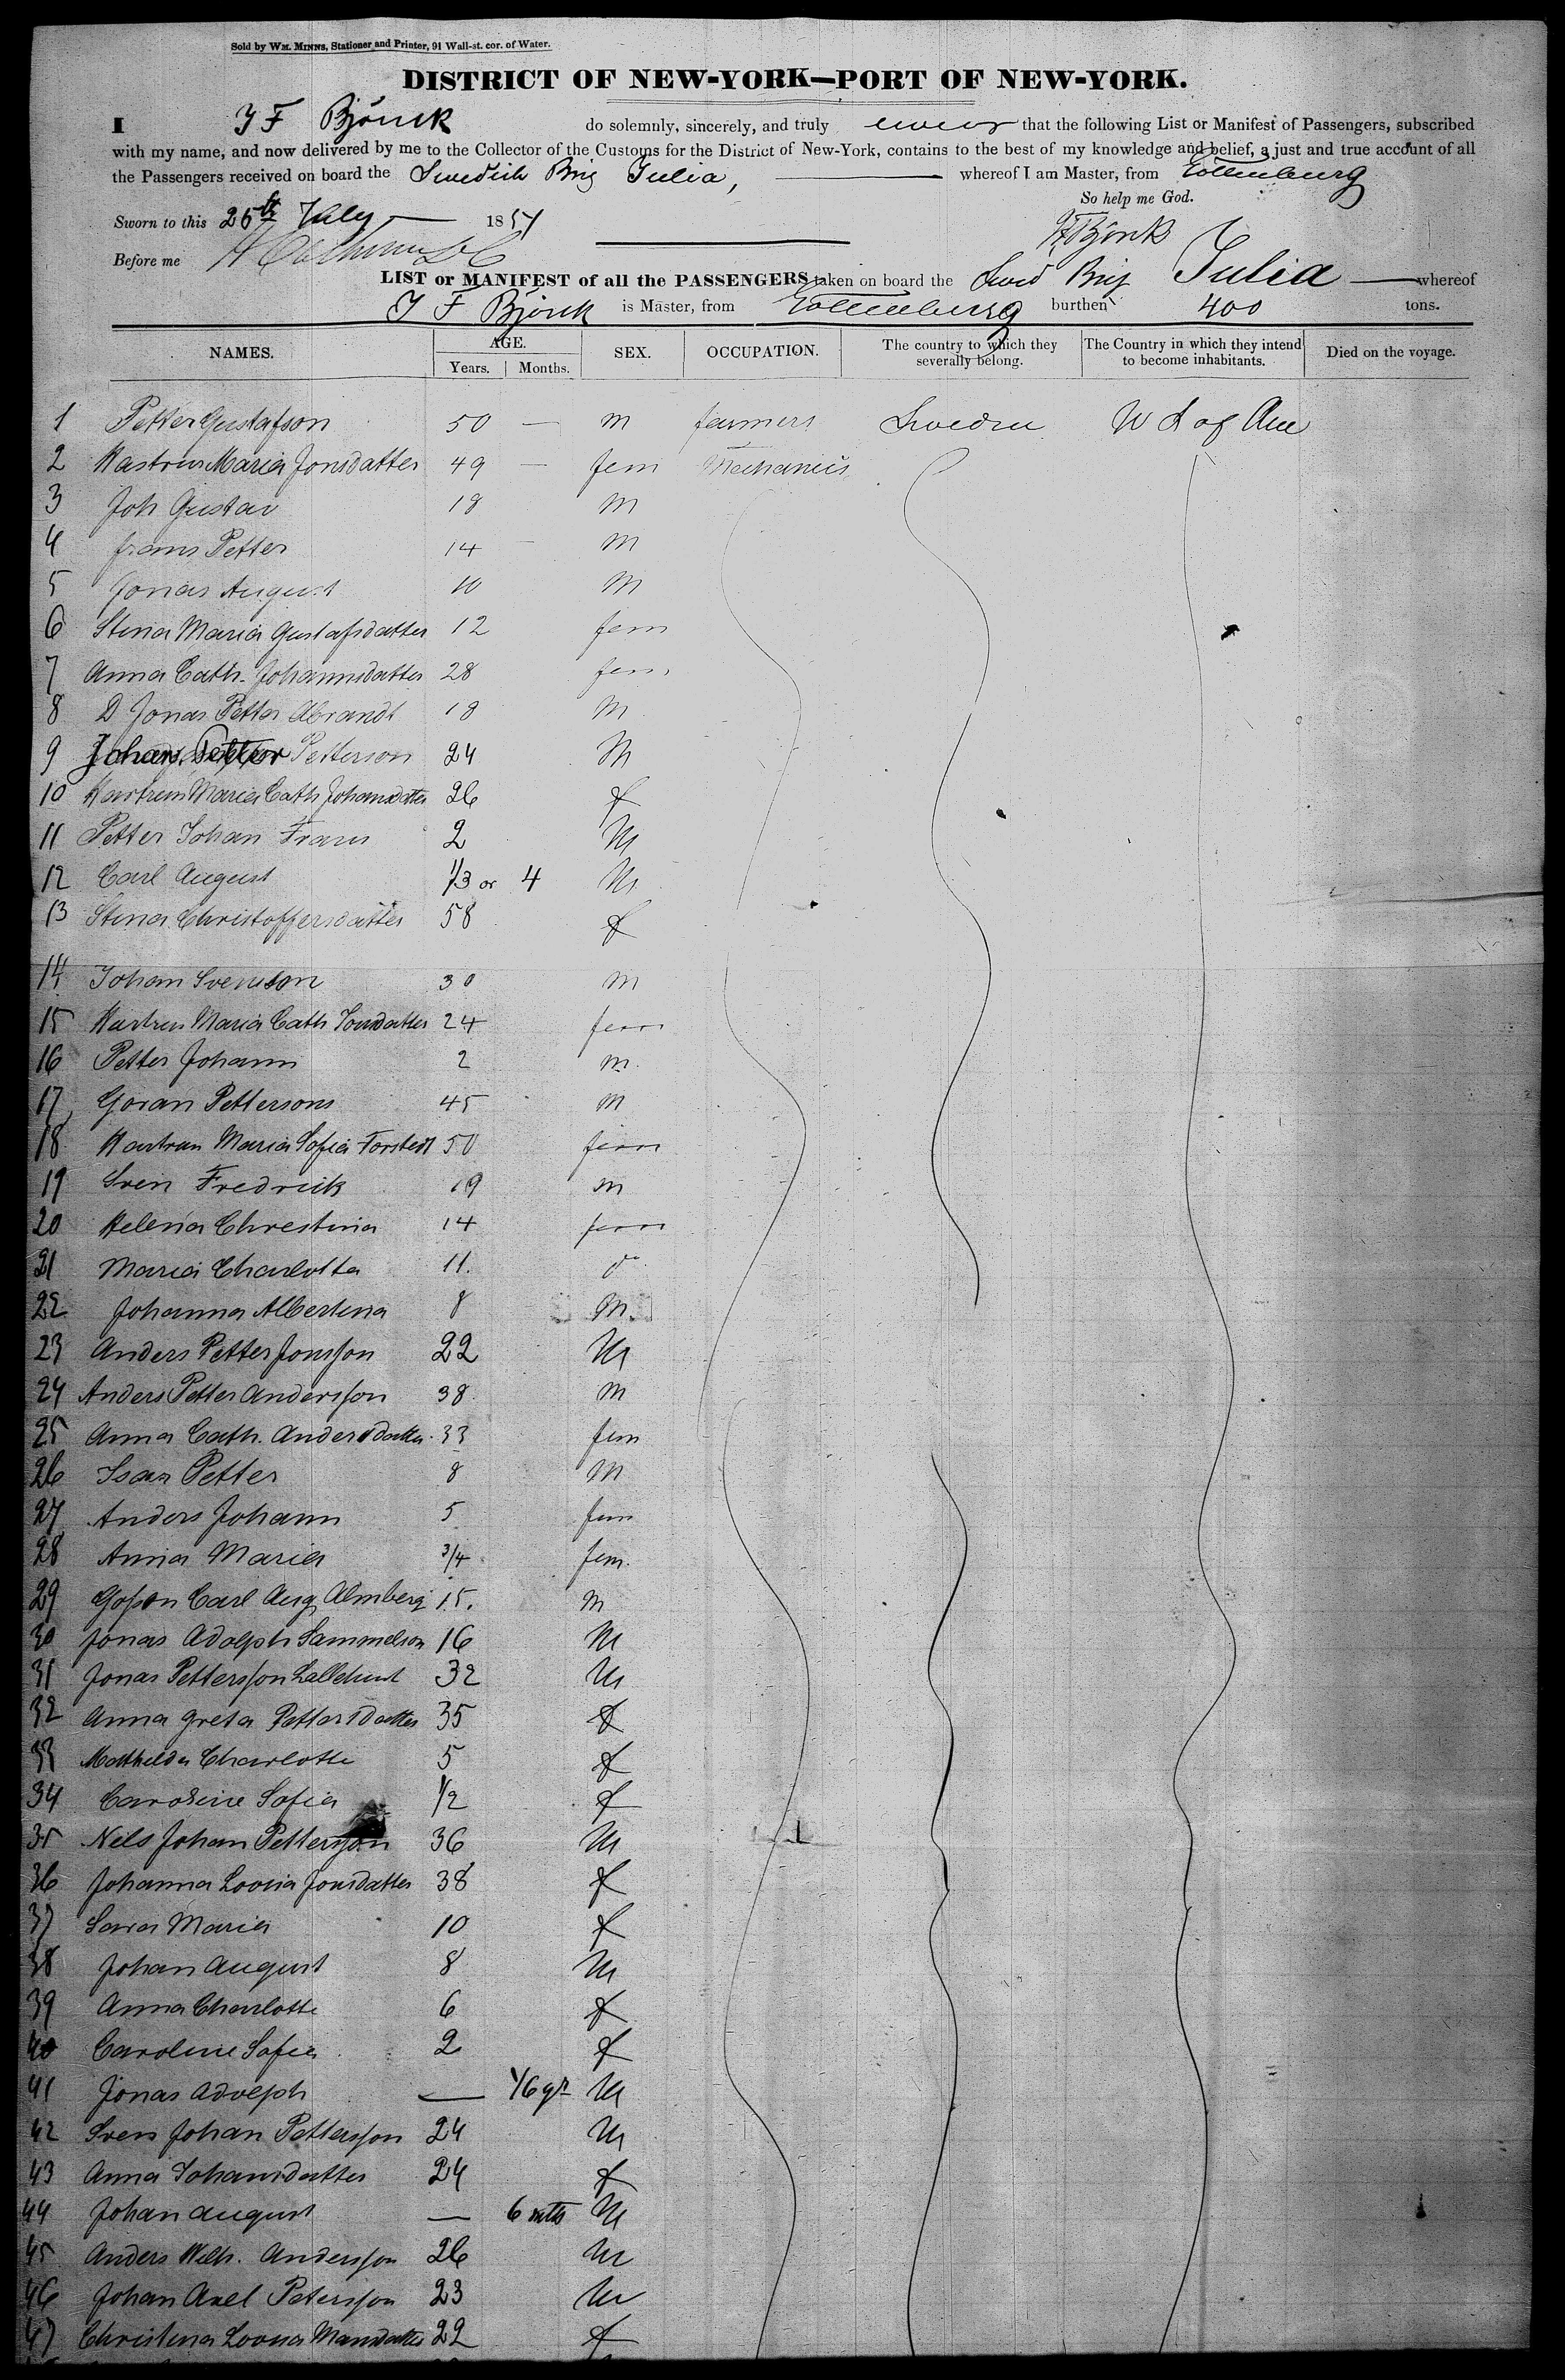 Sold by WM. MINNS, Stationer and Printer, 91 Wall-st. cor. of Water.
DISTRICT OF NEW-YORK—PORT OF NEW-YORK.
I J F Björck do solemnly, sincerely, and truly swear that the following List or Manifest of Passengers, subscribed
with my name, and now delivered by me to the Collector of the Customs for the District of New-York, contains to the best of my knowledge and belief, a just and true account of all
the Passengers received on board the Swedish Brig Julia, whereof I am Master, from Gottenburg
So help me God.
Sworn to this 25th July 1851
J F Björck
Before me
LIST or MANIFEST of all the PASSENGERS taken on board the Swed Brig Julia whereof
J F Björck is Master, from Gottenburg burthen 400 tons.
NAMES. AGE. SEX. OCCUPATION. The country to which they severally belong. The Country in which they intend to become inhabitants. Died on the voyage.
Years. Months.
1 Petter Gustafson 50 — m farmers Sweden U S of Am
2 Kastrin Maria Jonsdatter 49 — fem Mechanics
3 Joh Gustav 18 M
4 frans Petter 14 — M
5 Jonas August 10 M
6 Stina Maria Gustafsdatter 12 fem
7 Anna Cath. Johannsdatter 28 fem
8 D Jonas Petter Abrandt 18 M
9 Johan Petter Petterson 24 M
10 Kastrin Maria Cath Johansdatter 26 f
11 Petter Johan Frans 2 M
12 Carl August 1/3 or 4 M
13 Stina Christoffersdatter 58 f
14 Johan Svenson 30 m
15 Kastrin Maria Cath Jonsdatter 24 fem
16 Petter Johann 2 m.
17 Goran Pettersons 45 M
18 Kastran Maria Sofia Forstedt 50 fem
19 Sven Fredrick 19 m
20 Helena Chrestina 14 fem
21 Maria Charlotta 11. do
22 Johanna Albertina 8 M.
23 Anders Petter Jonsson 22 M
24 Anders Petter Andersson 38 M
25 Anna Cath. Andersdatter 33 fem
26 Isac Petter 8 M
27 Anders Johann 5 fem
28 Anna Maria 3/4 fem.
29 Carl Aug Almberg 15. M
30 Jonas Adolph Sammelson 16 M
31 Jonas Pettersson 32 M
32 Anna Greta Pettersdatter 35 f
33 Mathilda Charlotte 5 f
34 Caroline Sofia 1/2 f
35 Nils Johan Pettersson 36 M
36 Johanna Lovisa Jonsdatter 38 f
37 Sara Maria 10 f
38 Johan August 8 M
39 Anna Charlotte 6 f
40 Caroline Sofia 2 f
41 Jonas Adolph — 1/6 yr M
42 Sven Johan Pettersson 24 M
43 Anna Johansdatter 24 f
44 Johan August — 6 mths M
45 Anders Wilh. Andersson 26 M
46 Johan Axel Petersson 23 M
47 Christina Lovisa Mansdatter 22 f